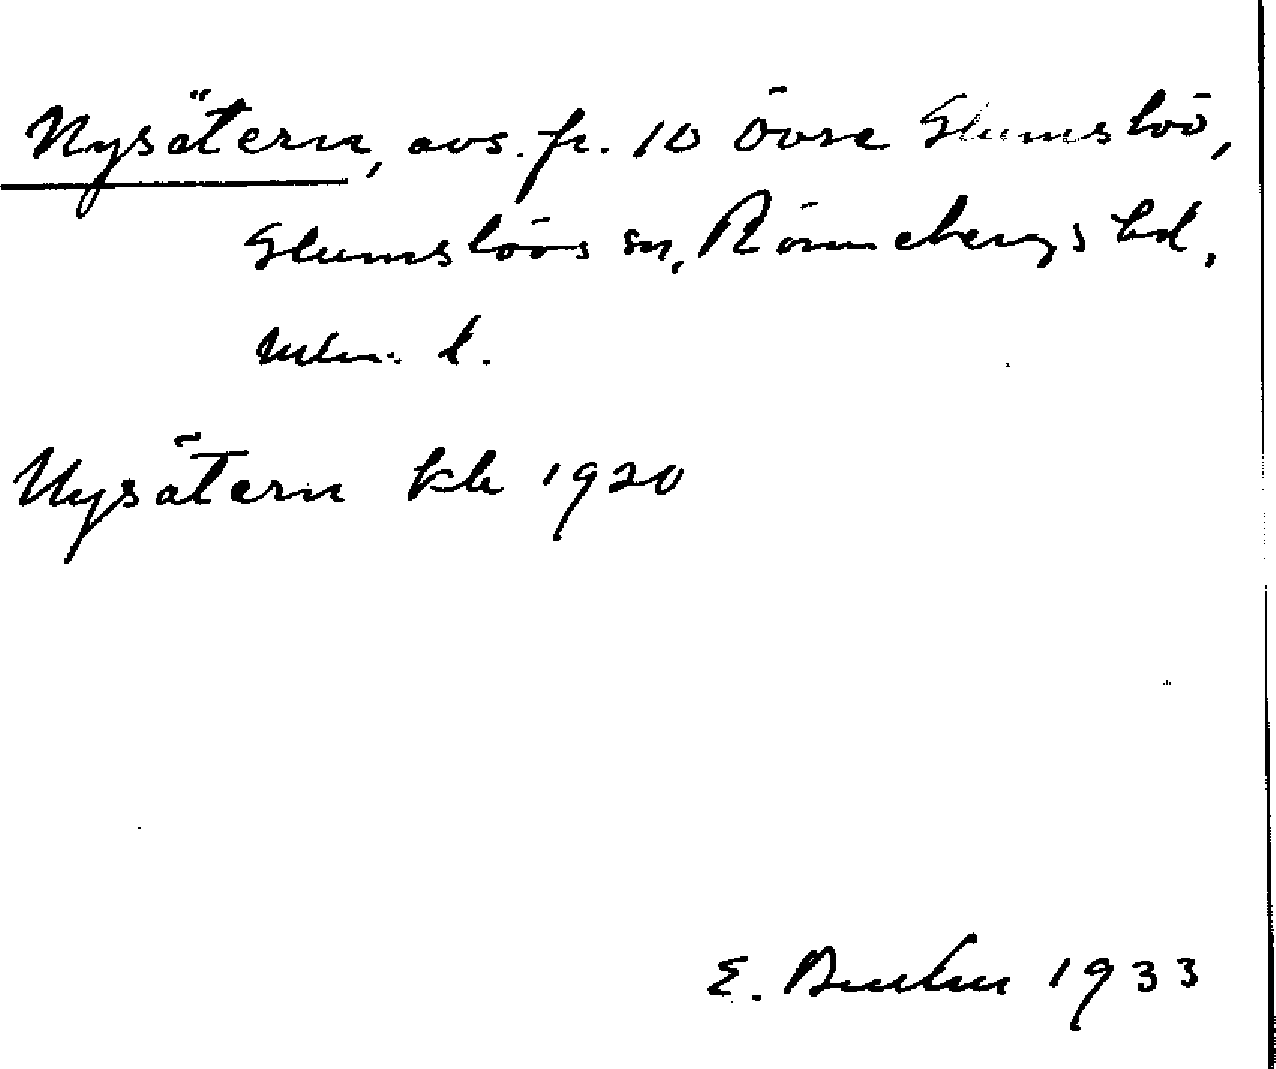 Nysätern, avs. fr. 10 Övre Glumslöv,
Glumslövs sn, Rönnebergs hd,
Mlm. l.
Nysätern kb 1920
E. 1933